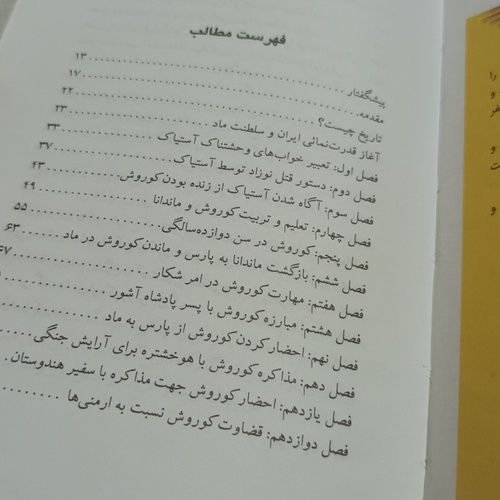 فهرست مطالب
پیشگفتار ........ ۱۳
مقدمه ........ ۱۷
تاریخ چیست؟ ........ ۲۲
آغاز قدرت‌نمائی ایران و سلطنت ماد ........ ۲۳
فصل اول: تعبیر خواب‌های وحشتناک آستیاک ........ ۳۳
فصل دوم: دستور قتل نوزاد توسط آستیاک ........ ۳۷
فصل سوم: آگاه شدن آستیاک از زنده بودن کوروش ........ ۴۳
فصل چهارم: تعلیم و تربیت کوروش و ماندانا ........ ۴۹
فصل پنجم: کوروش در سن دوازده‌سالگی ........ ۵۵
فصل ششم: بازگشت ماندانا به پارس و ماندن کوروش در ماد ........ ۶۳
فصل هفتم: مهارت کوروش در امر شکار ........ ۶۷
فصل هشتم: مبارزه کوروش با پسر پادشاه آشور ........
فصل نهم: احضار کردن کوروش از پارس به ماد ........
فصل دهم: مذاکره کوروش با هوخشتره برای آرایش جنگی ........
فصل یازدهم: احضار کوروش جهت مذاکره با سفیر هندوستان .
فصل دوازدهم: قضاوت کوروش نسبت به ارمنی‌ها ........